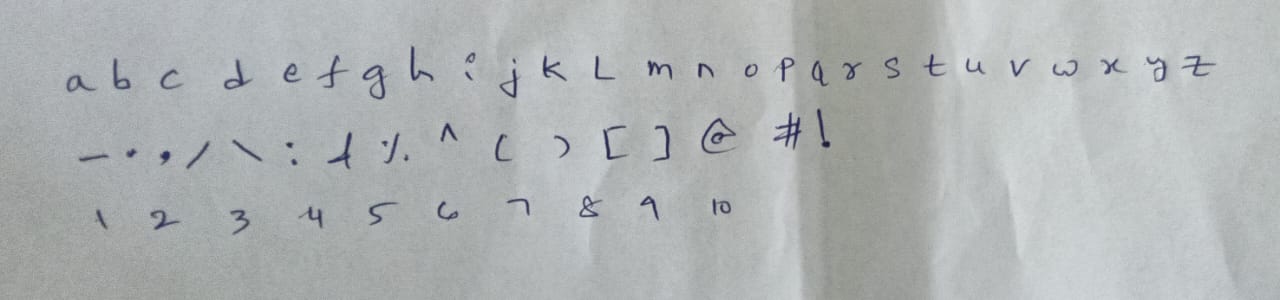 a b c d e f g h i j k L m n o p q r s t u v w x y z
- . , / \ : % ^ ( ) [ ] @ # !
1 2 3 4 5 6 7 8 9 10